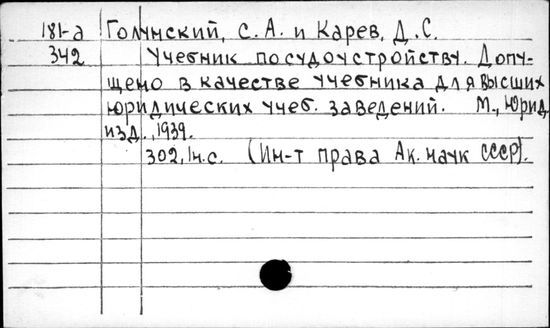 181-а Голунский, С. А. и Карев, Д. С.
342 Учебник по судоустройству. Допу-
щено в качестве учебника для высших
юридических учеб. заведений. М., Юрид.
изд., 1939.
302, 1н. с. (Ин-т права Ак. наук СССР).